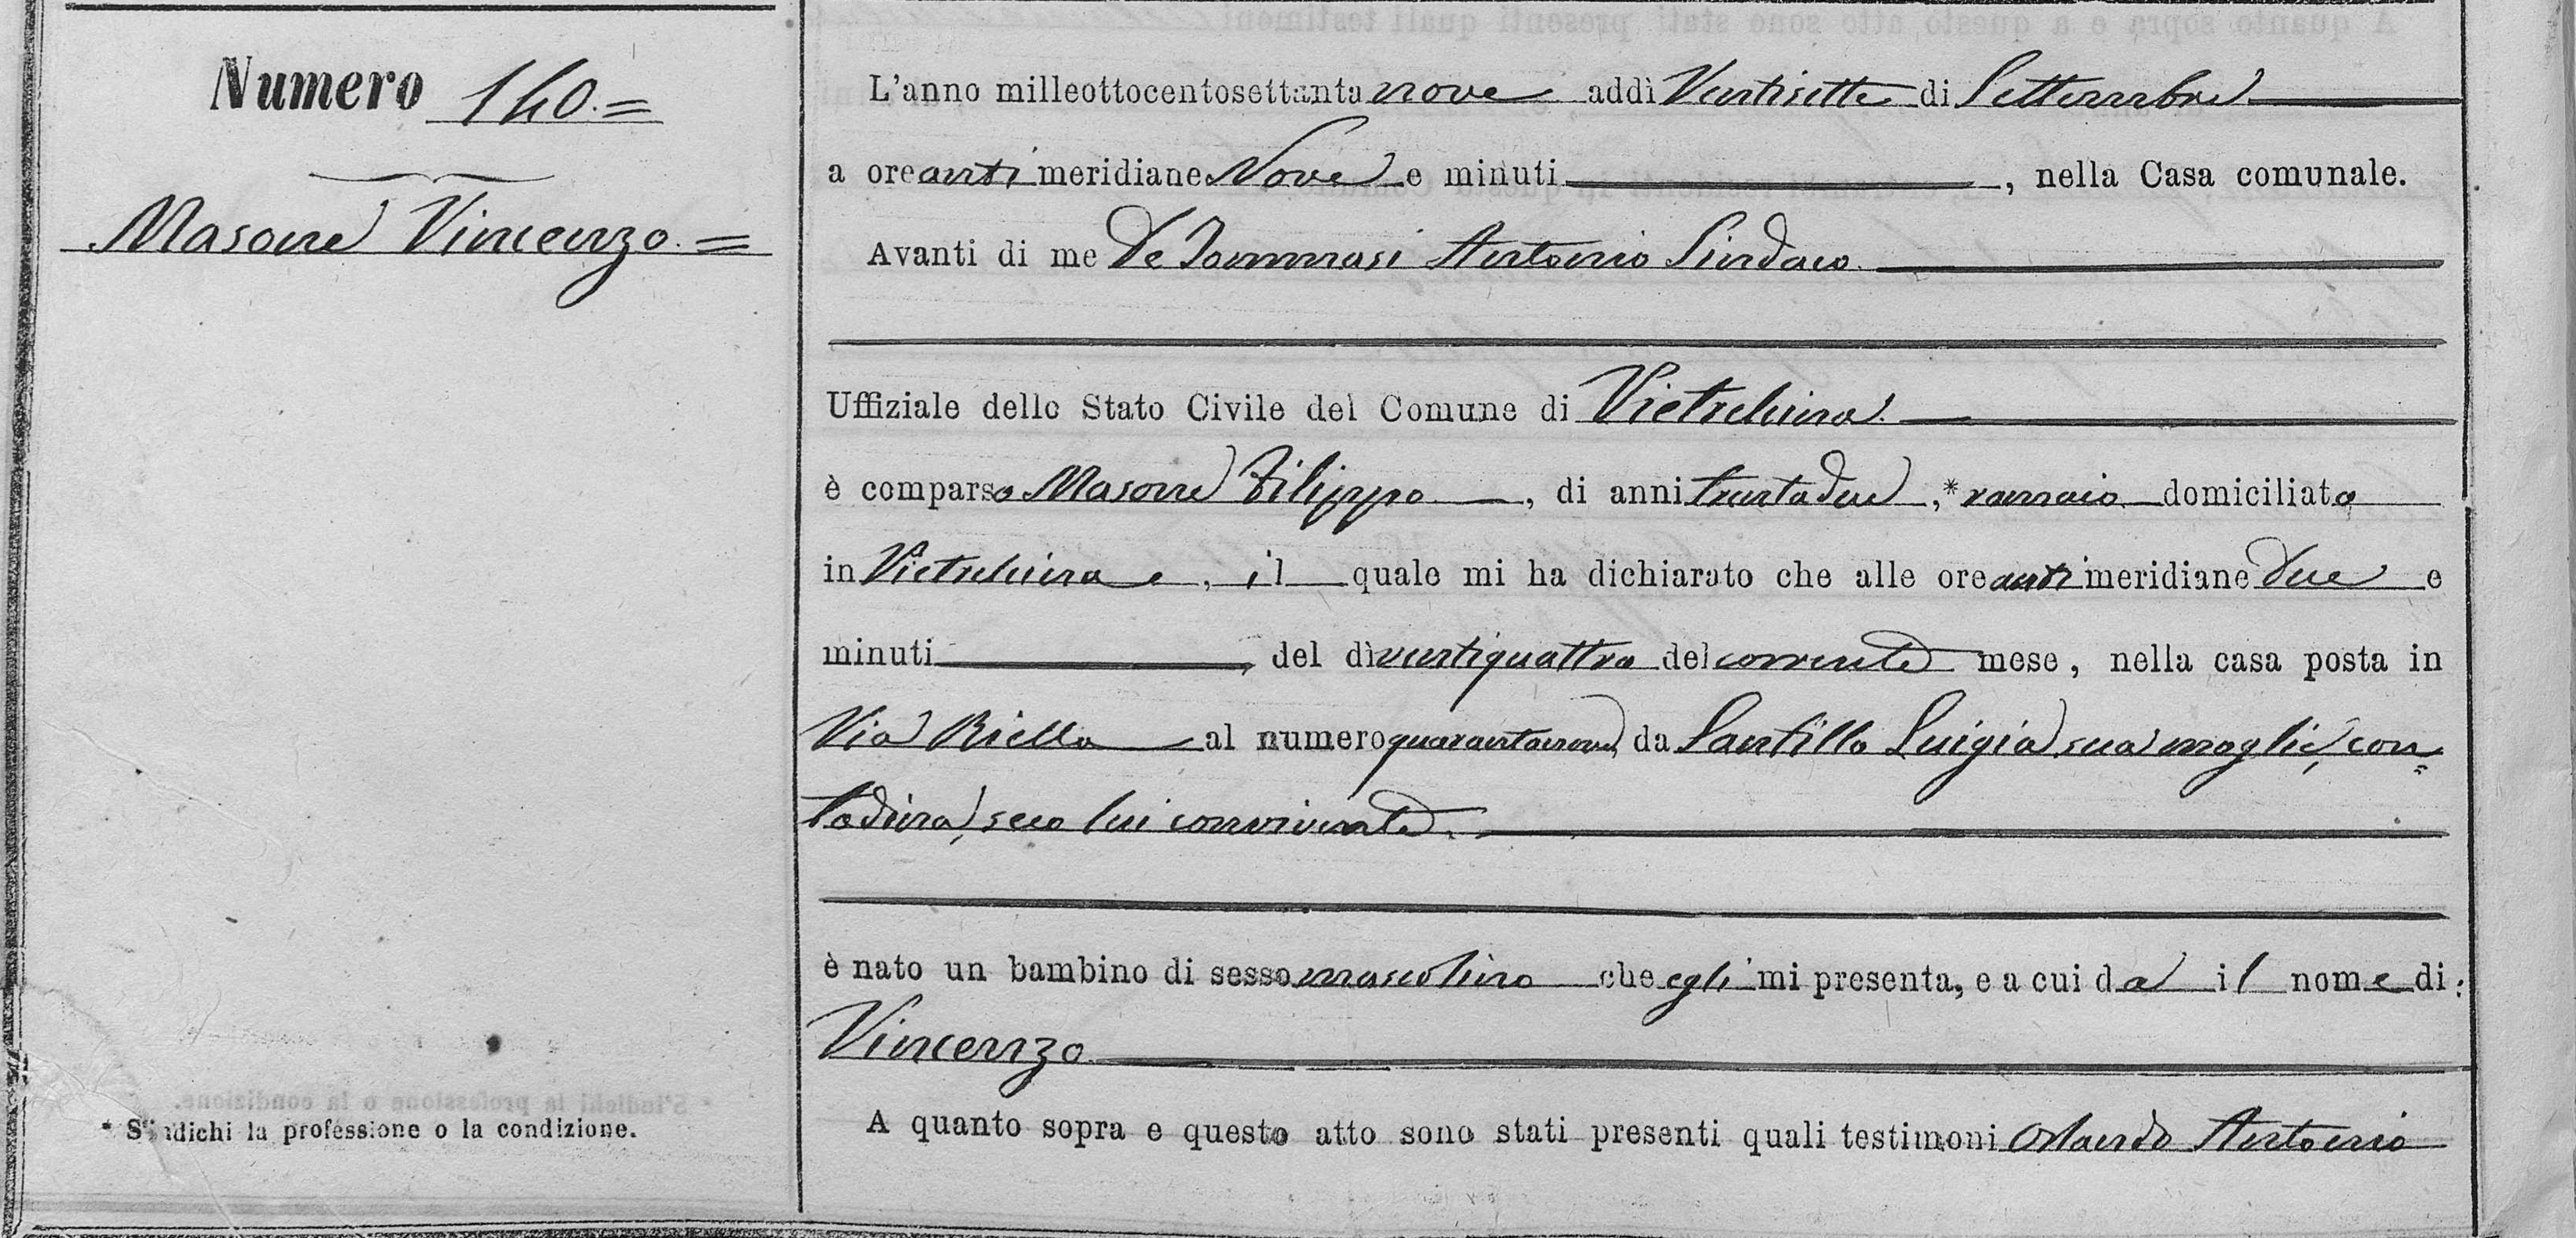 Numero 140.=
Masone Vincenzo.=
* S'indichi la professione o la condizione.
L'anno milleottocentosettanta nove addì Ventisette di Settembre
a ore anti meridiane Nove e minuti , nella Casa comunale.
Avanti di me De Tommasi Antonio Sindaco.
Uffiziale dello Stato Civile del Comune di Vietrchina.
è comparso Masone Filippo , di anni trentadue ,* ramaio domiciliato
in Vietrchina , il quale mi ha dichiarato che alle ore anti meridiane due e
minuti , del dì ventiquattro del corrente mese, nella casa posta in
Via Riella al numero quarantanove, da Santillo Luigia sua moglie, con=
tadina, seco lui convivente.
è nato un bambino di sesso mascolino che egli mi presenta, e a cui dà il nome di:
Vincenzo
A quanto sopra e questo atto sono stati presenti quali testimoni Orlando Antonio